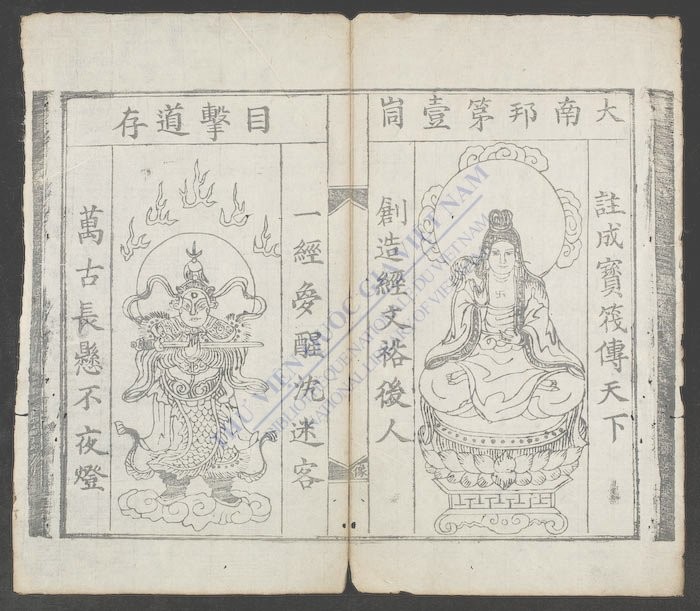 大南邦第壹峝
註成寶筏傳天下
創造經文裕後人
目擊道存
一經醒沈迷客
萬古長懸不夜燈
THƯ VIỆN QUỐC GIA VIỆT NAM
BIBLIOTHÈQUE NATIONALE DU VIETNAM
NATIONAL LIBRARY OF VIETNAM